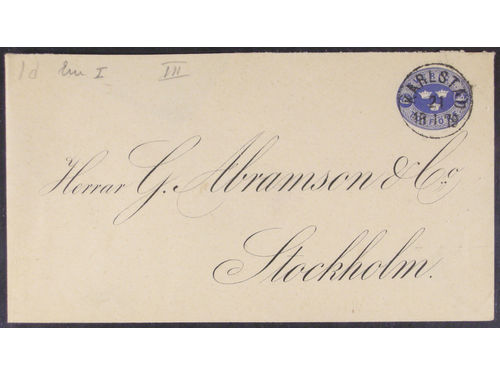 1d Em I III
KARLSTAD
21
Herrar G. Abramson & Co.
Stockholm.